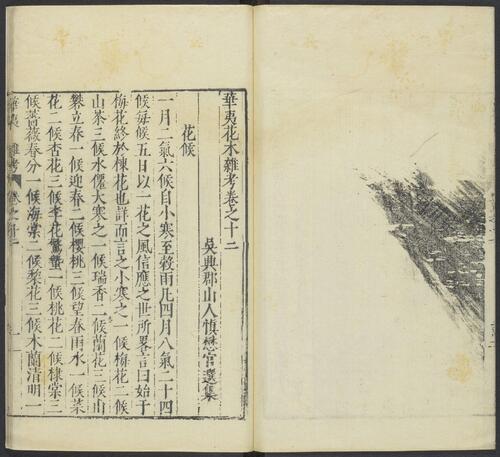 華夷花木雜考卷之十二
吳興郡山人慎懋官選集
花候
一月二氣六候自小寒至穀雨凡四月八氣二十四
候每候五日以一花之風信應之世所異言曰始于
梅花終於楝花也詳而言之小寒之一候梅花二候
山茶三候水僊大寒之一候瑞香二候蘭花三候山
礬立春一候迎春二候櫻桃三候望春雨水一候菜
花二候杏花三候李花驚蟄一候桃花二候棣棠三
候薔薇春分一候海棠二候梨花三候木蘭清明一